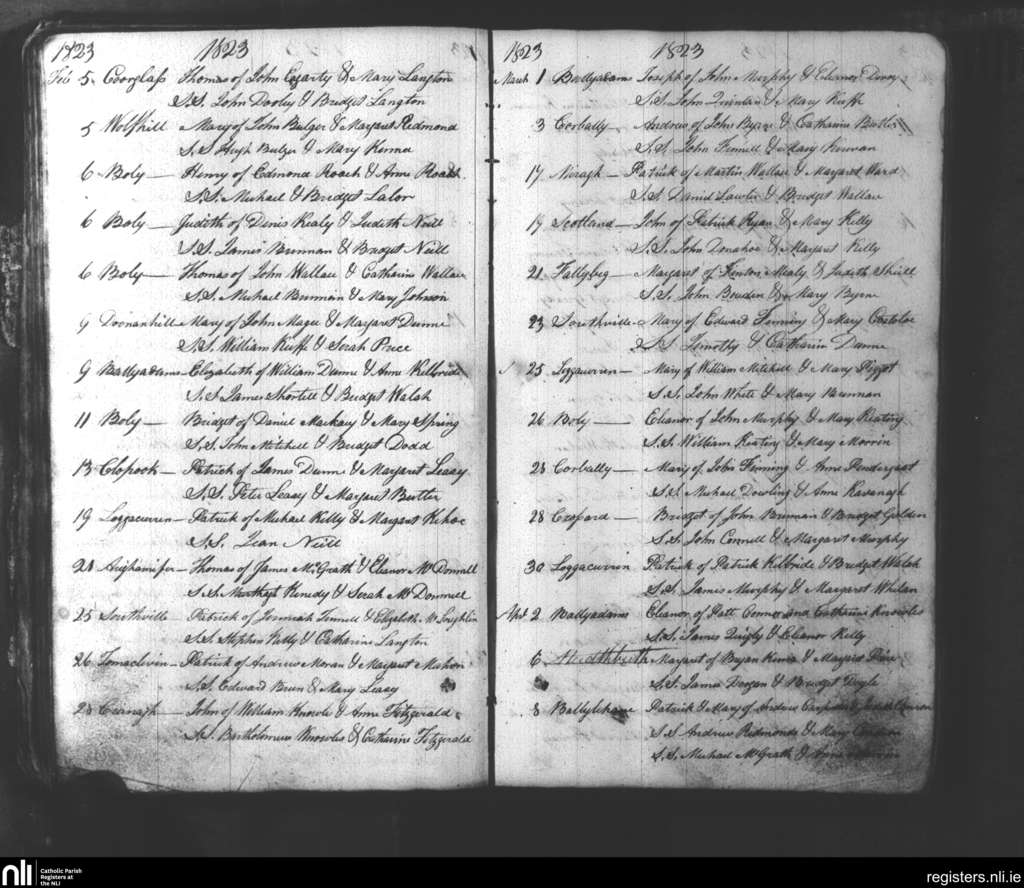 1823 1823
Feb 5 Coorglass Thomas of John Fogarty & Mary Langton
S.S. John Dooley & Bridget Langton
5 Wolfhill Mary of John Bulger & Margaret Redmond
S.S Hugh Bulger & Mary
6 Boly Henry of Edmond Roach & Anne Roach
S.S. Michael & Bridget Lalor
6 Boly Judith of Denis Kealy & Judith Neill
S.S. James Brennan & Bridget Neill
6 Boly Thomas of John Wallace & Catharine Wallace
S.S. Michael Brennan & Mary Johnson
9 Doonanhill Mary of John Magee & Margaret Dunne
S.S. William Kieffe & Sarah Price
9 Ballyadams Elizabeth of William Dunne & Anne Kilbride
S.S James Shortell & Bridget Walsh
11 Boly Bridget of Daniel Mackay & Mary Spring
S.S. John Mitchell & Bridget Dodd
13 Clopook Patrick of James Dunne & Margaret Leasy
S.S. Peter Leasy & Margaret Butler
19 Loggacurren Patrick of Michael Kelly & Margaret Kehoe
S.S. Jean Neill
21 Thomas of James McGrath & Eleanor McDonnell
S.S. Kenedy & Sarah McDonnell
25 Southville Patrick of Jeremiah Fennell & Elizabeth McLoughlin
S.S. Stephen Kelly & Catharine Langton
26 Tomaclivin Patrick of Andrew Moran & Margaret
S.S Edward Bren & Mary Leasy
28 John of William Knowls & Anne Fitzgerald
S.S. Bartholomew Knowles & Catharine Fitzgerald
1823 1823
March 1 Ballyadams Joseph of John Murphy & Eleanor
S.S John Quinlan & Mary Kieffe
3 Corbally Andrew of John Byrne & Catharine Butler
S.S. John Fennell & Mary Kerwan
17 Patrick of Martin Wallace & Margaret Ward
S.S Daniel Lawler & Bridget Wallace
19 Scotland John of Patrick Ryan & Mary Kelly
S.S. John Donahoe & Margaret Kelly
21 Fallybeg Margaret of Mealy & Judith
S.S. John Bowden & Mary Byrne
23 Southville Mary of Edward Fenning & Mary Costoloe
S.S Timothy & Catharine Dunne
25 Loggacurren Mary of William Mitchell & Mary Piggot
S.S. John White & Mary Brennan
26 Boly Eleanor of John Murphy & Mary Keating
S.S. William Keating & Mary Morrin
28 Corbally Mary of John Fenning & Anne Pendergast
S.S. Michael Dowling & Anne Kavanagh
28 Bridget of John Brennan & Bridget
S.S. John Connell & Margaret Murphy
30 Loggacurren Patrick of Patrick Kilbride & Bridget Walsh
S.S. James Murphy & Margaret Whelan
Apl 2 Ballyadams Eleanor of Patt Connor and Catharine Knowles
S.S. James Quigly & Eleanor Kelly
6 Margaret of Bryan & Margaret
S.S James Deegan & Bridget Doyle
8 Ballylehane Patrick & Mary of Andrew
S.S Andrew Redmonds & Mary
S.S. Michael McGrath & Anne
nli
Catholic Parish
Registers at
the NLI
registers.nli.ie